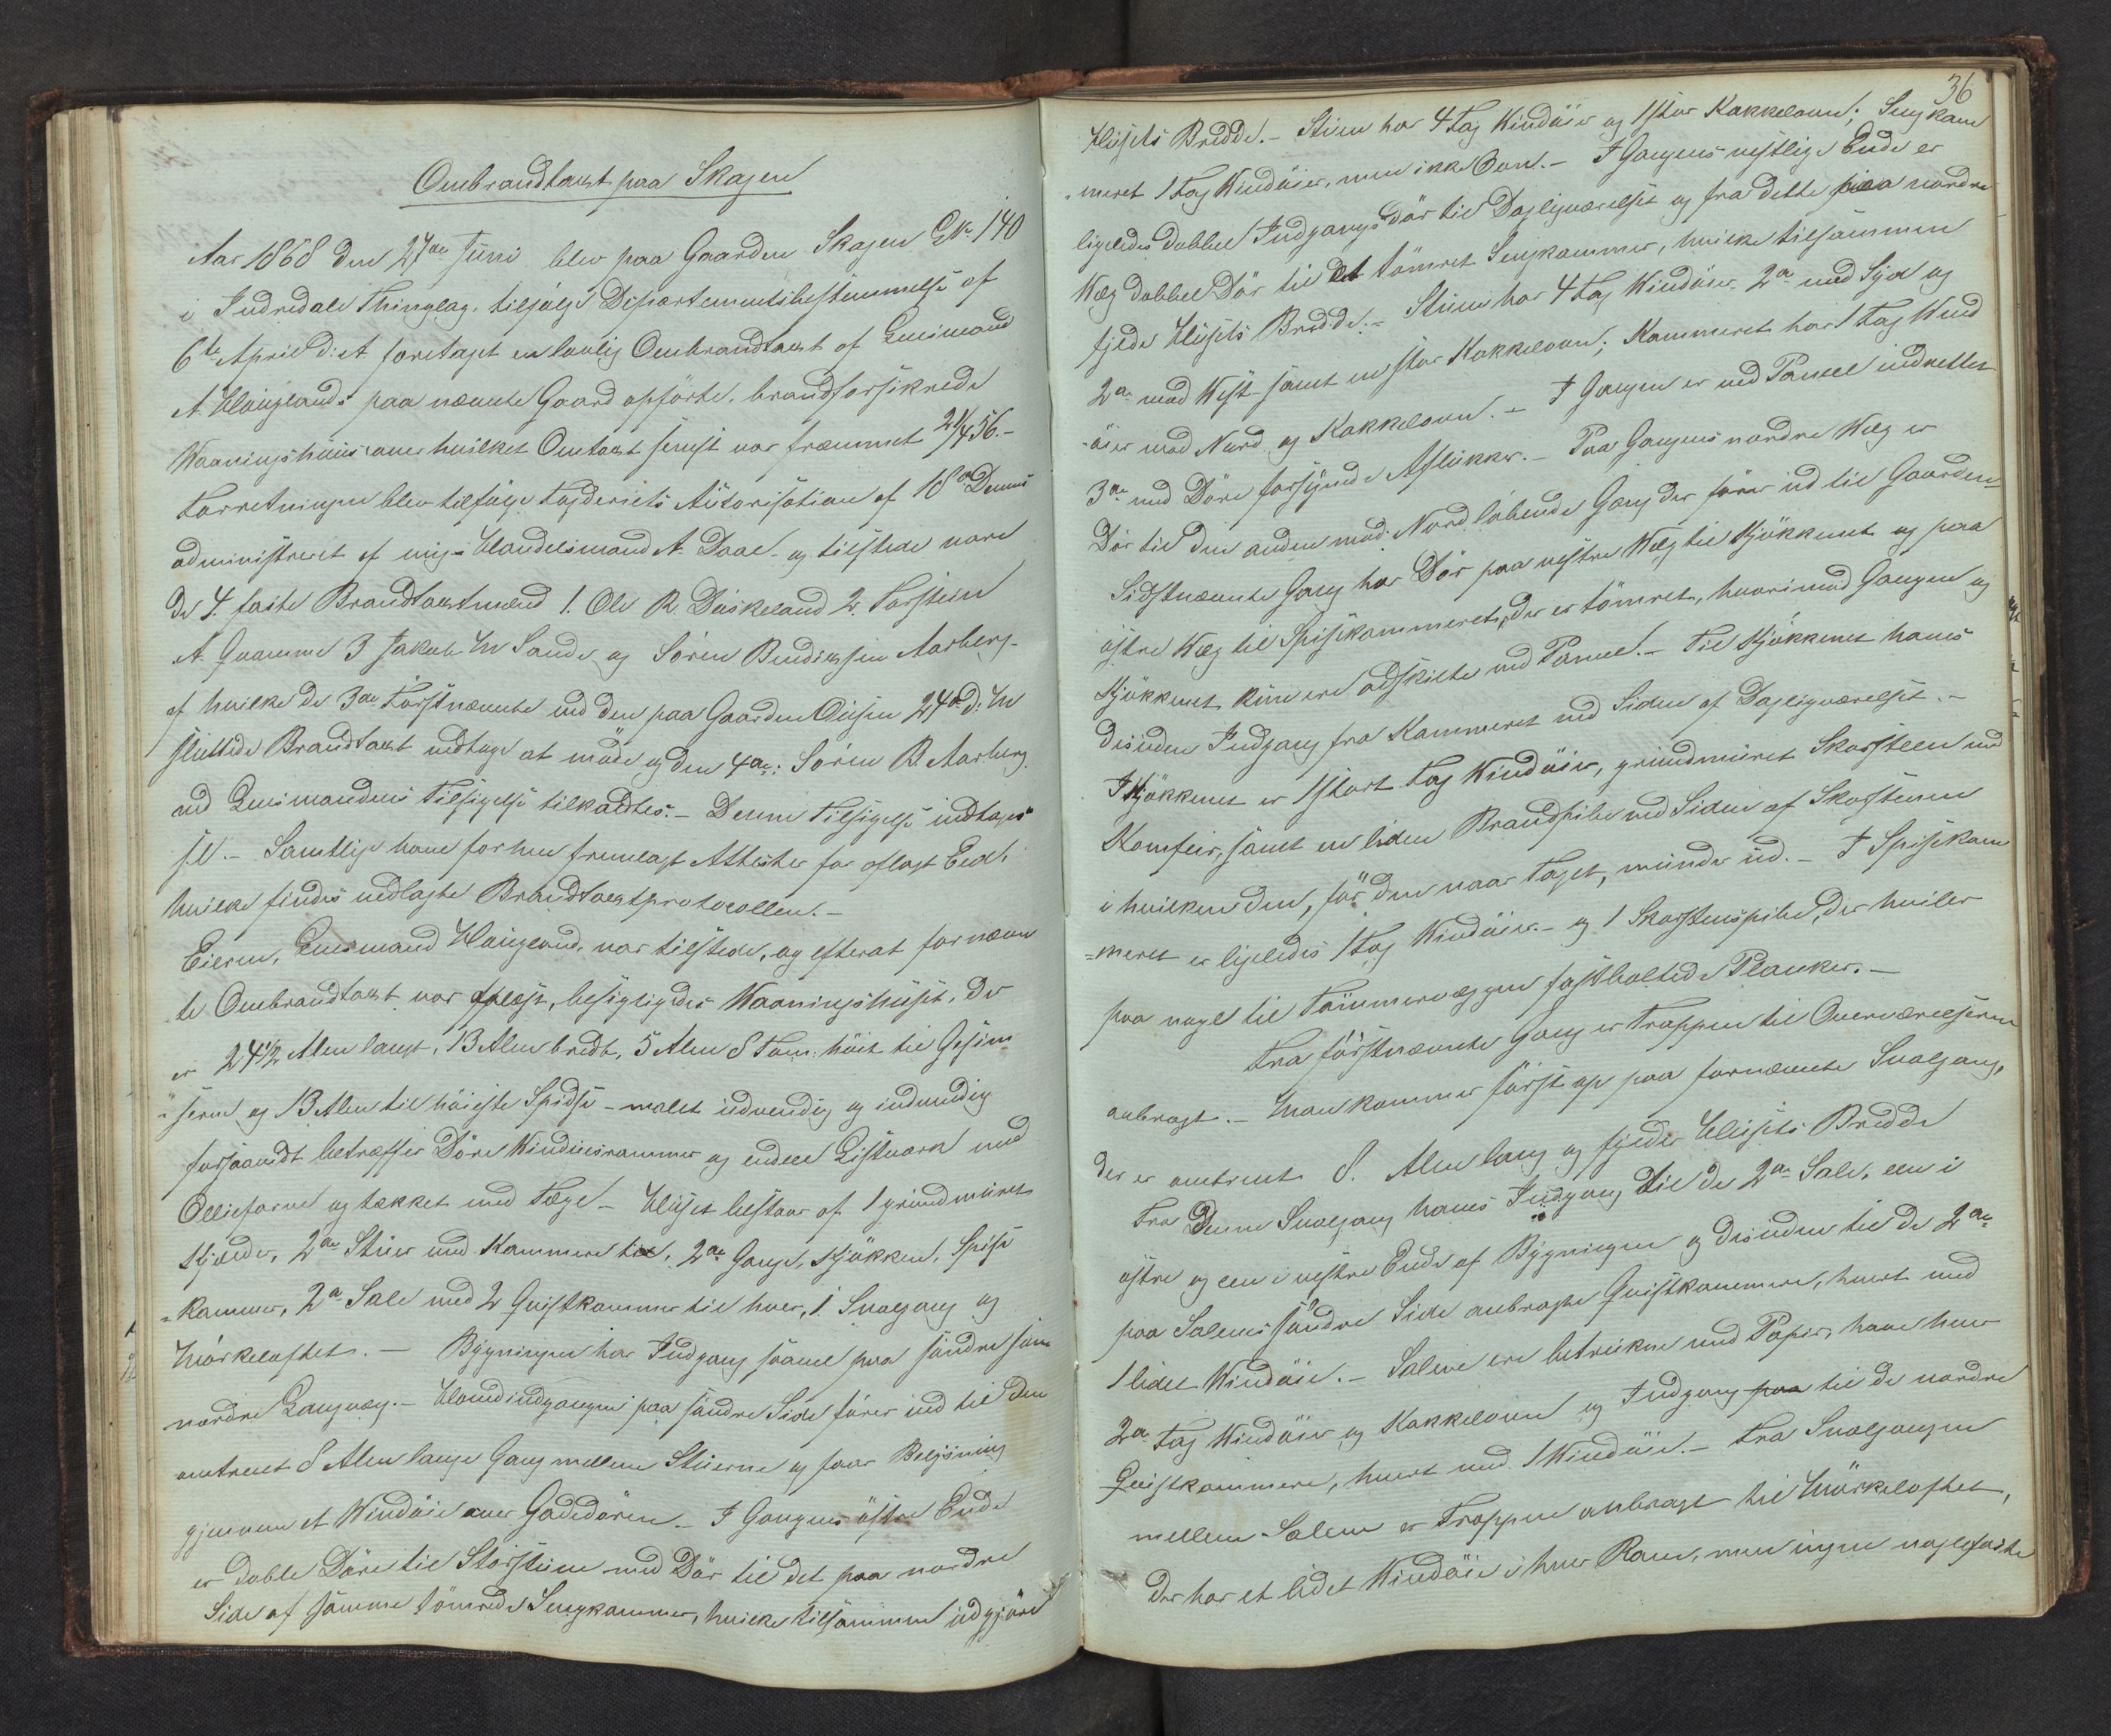 Ombrandtaxt paa Skagen
Aar 1868 den 27de Juni blev paa Gaarden Skagen GNr. 140
i Indredale Thinglag, tilfølge Departementsbestemmelse af
6te April d: A foretaget en lovlig Ombrandtaxt af Lensmand
A. Hauglands paa nævnte Gaard opførte, brandforsikrede
Waaningshuus over hvilket Omtaxt senest var fremmet 21/4 56.-
Forretningen blev tilfølge Fogderiets Autorisation af 18de Dennes
administreret af mig - Handelsmand A. Daae - og tilstede vare
de 4. faste Brandtaxtmænd 1. Ole R. Duskeland 2. Torstein
A. Qvamme 3 Jakob M Sande og Søren Bendixsen Aarberg -
af hvilke de 3de Førstnævnte ved den paa Gaarden Øugen 24de d: M
sluttede Brandtaxt vedtoge at møde og den 4de: Søren B. Aarberg
ved Lensmandens Tilsigelse tilkaldtes. - Denne Tilsigelse indtages
sl. - Samtlige have forhen fremlagt Attester for aflagt Eed,
hvilke findes vedlagte Brandtaxtprotocollen. -
Eieren, Lensmand Haugland, var tilstede, og efterat fornævn
te Ombrandtaxt var oplæst, besigtigedes Waaningshuset, der
er 24 1/2 Alen langt, 13 Alen bredt, 5 Alen 8 Tom: høit til Gesim
"serne og 13 Alen til høieste Spidse - malet udvendig og indvendig
forsaavidt betræffer Døre Winduesrammer og endeel Listværk med
Olliefarve og tækket med Tægl - Huset bestaar af 1 grundmuret
Kjælder, 2de Stuer med Kammere til, 2de Gange, Kjøkken, Spise
"kammer, 2de Sale med 2 Qvistkammer til hver, 1. Svalgang og
Mørkeloftet. - Bygningen har Indgang saavel paa søndre som
nordre Langvæg. - Hovedindgangen paa søndre Side fører ind til den
omtrent 8 Alen lange Gang mellem Stuerne og faar Belysning
gjennem et Windøie over Gadedøren. - I Gangens østre Ende
er doble Døre til Storstuen med Dør til det paa nordre
Side af samme tømrede Sengkammer, hvilke tilsammen udgjøre
36
Husets Bredde. - Stuen har 4 Fag Windøier og 1 stor Kakkelovn; Sengkam
"meret 1 Fag Windøier, men ikke Ovn. - I Gangens vestlige Ende er
ligeledes dobbel Indgangsdør til Dagligværelset og fra dette paa nordre
Wæg dobbel Dør til et tømret Sengkammer, hvilke tilsammen
fylde Husets Bredde. - Stuen har 4 Fag Windøier 2de mod Syd og
2de mod West samt en stor Kakkelovn; Kammeret har 1 Fag Wind
"øier mod Nord og Kakkelovn. - I Gangen er ved Paneel indrettet
3de med Døre forsynede Aflukker. - Paa Gangens nordre Wæg er
Dør til den anden mod Nord løbende Gang der fører ud til Gaarden -
Sidstnævnte Gang har Dør paa vestre Wæg til Kjøkkenet og paa
østre Wæg til Spisekammeret, der er tømret, hvorimod Gangen og
Kjøkkenet kun ere adskilte ved Paneel. - Til Kjøkkenet haves
desuden Indgang fra Kammeret ved Siden af Dagligværelset. -
I Kjøkkenet er 1 stort Fag Windøier, grundmuret Skorsteen med
Komfeir, samt en liden Brandpibe ved Siden af Skorstenen
i hvilken den, før den naar Taget, munder ud. - I Spisekam
"meret er ligeledes 1 Fag Windøier. - og 1 Skorstenspibe, der hviler
paa nogle til Tømmervæggen fastboltede Planker. -
Fra førstnævnte Gang er Trappen til Overværelserne
anbragt. - Man kommer først op paa fornævnte Svalgang,
der er omtrent 8. Alen lang og fylder Husets Bredde
Fra denne Svalgang haves Indgang til de 2de Sale, een i
østre og een i vestre Ende af Bygningen og desuden til de 2de
paa Salenes søndre Side anbragte Qvistkammere, hvert med
1 lidet Windøie. - Salene ere betrukne med Papir, have hver
2de Fag Windøier og Kakkelovn og Indgang paa til de nordre
Qvistkammere, hvert med 1 Windøie. - Fra Svalgangen
mellem Salene er Trappen anbragt til Mørkeloftet,
der har et lidet Windøie i hver Rom, men ingen naglefaste